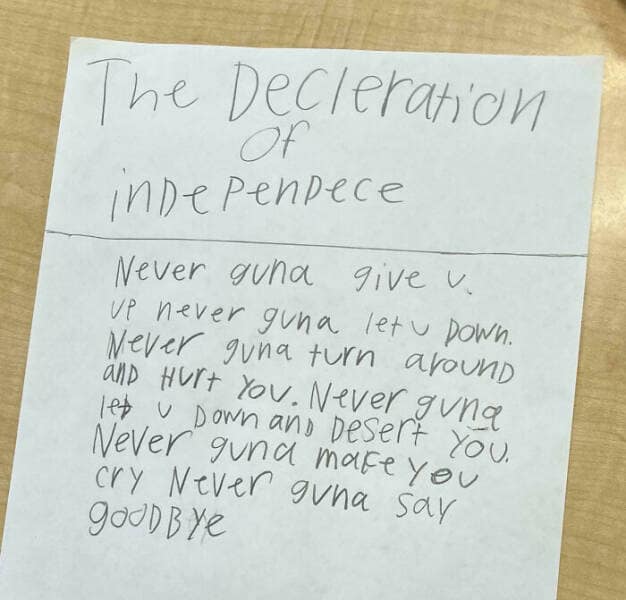 The Decleration
of
inDePenDece
Never guna give u.
uP never guna let u Down.
Never guna turn around
anD Hurt You. Never guna
let u Down anD Desert You.
Never guna make you
cry Never guna say
gooDBYe